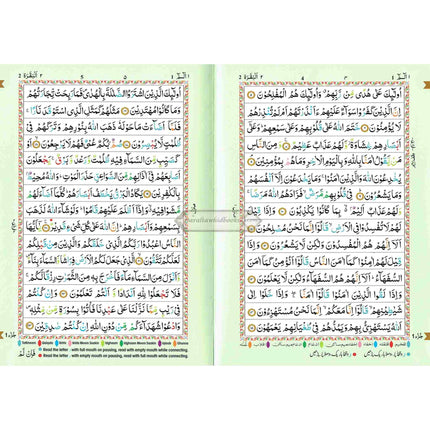 اُولٰٓئِكَ عَلٰى هُدًى مِّنْ رَّبِّهِمْ وَاُولٰٓئِكَ هُمُ الْمُفْلِحُوْنَ
اِنَّ الَّذِيْنَ كَفَرُوْا سَوَآءٌ عَلَيْهِمْ ءَاَنْذَرْتَهُمْ اَمْ لَمْ تُنْذِرْهُمْ
لَا يُؤْمِنُوْنَ خَتَمَ اللّٰهُ عَلٰى قُلُوْبِهِمْ وَعَلٰى سَمْعِهِمْ وَعَلٰٓى
اَبْصَارِهِمْ غِشَاوَةٌ وَّلَهُمْ عَذَابٌ عَظِيْمٌ وَمِنَ النَّاسِ
مَنْ يَّقُوْلُ اٰمَنَّا بِاللّٰهِ وَبِالْيَوْمِ الْاٰخِرِ وَمَا هُمْ بِمُؤْمِنِيْنَ
يُخٰدِعُوْنَ اللّٰهَ وَالَّذِيْنَ اٰمَنُوْا وَمَا يَخْدَعُوْنَ اِلَّآ اَنْفُسَهُمْ
وَمَا يَشْعُرُوْنَ فِيْ قُلُوْبِهِمْ مَّرَضٌ فَزَادَهُمُ اللّٰهُ مَرَضًا
وَلَهُمْ عَذَابٌ اَلِيْمٌ بِمَا كَانُوْا يَكْذِبُوْنَ وَاِذَا قِيْلَ
لَهُمْ لَا تُفْسِدُوْا فِي الْاَرْضِ قَالُوْٓا اِنَّمَا نَحْنُ مُصْلِحُوْنَ
اَلَآ اِنَّهُمْ هُمُ الْمُفْسِدُوْنَ وَلٰكِنْ لَّا يَشْعُرُوْنَ وَاِذَا
قِيْلَ لَهُمْ اٰمِنُوْا كَمَآ اٰمَنَ النَّاسُ قَالُوْٓا اَنُؤْمِنُ كَمَآ اٰمَنَ
السُّفَهَآءُ اَلَآ اِنَّهُمْ هُمُ السُّفَهَآءُ وَلٰكِنْ لَّا يَعْلَمُوْنَ
وَاِذَا لَقُوا الَّذِيْنَ اٰمَنُوْا قَالُوْٓا اٰمَنَّا وَاِذَا خَلَوْا اِلٰى
شَيٰطِيْنِهِمْ قَالُوْٓا اِنَّا مَعَكُمْ اِنَّمَا نَحْنُ مُسْتَهْزِءُوْنَ
اَللّٰهُ يَسْتَهْزِئُ بِهِمْ وَيَمُدُّهُمْ فِيْ طُغْيَانِهِمْ يَعْمَهُوْنَ
اُولٰٓئِكَ الَّذِيْنَ اشْتَرَوُا الضَّلٰلَةَ بِالْهُدٰى فَمَا رَبِحَتْ تِّجَارَتُهُمْ
وَمَا كَانُوْا مُهْتَدِيْنَ مَثَلُهُمْ كَمَثَلِ الَّذِي اسْتَوْقَدَ نَارًا
فَلَمَّآ اَضَآءَتْ مَا حَوْلَهٗ ذَهَبَ اللّٰهُ بِنُوْرِهِمْ وَتَرَكَهُمْ فِيْ
ظُلُمٰتٍ لَّا يُبْصِرُوْنَ صُمٌّۢ بُكْمٌ عُمْيٌ فَهُمْ لَا يَرْجِعُوْنَ
اَوْ كَصَيِّبٍ مِّنَ السَّمَآءِ فِيْهِ ظُلُمٰتٌ وَّرَعْدٌ وَّبَرْقٌ يَجْعَلُوْنَ
اَصَابِعَهُمْ فِيْٓ اٰذَانِهِمْ مِّنَ الصَّوَاعِقِ حَذَرَ الْمَوْتِ وَاللّٰهُ مُحِيْطٌۢ
بِالْكٰفِرِيْنَ يَكَادُ الْبَرْقُ يَخْطَفُ اَبْصَارَهُمْ كُلَّمَآ اَضَآءَ لَهُمْ
مَّشَوْا فِيْهِ وَاِذَآ اَظْلَمَ عَلَيْهِمْ قَامُوْا وَلَوْ شَآءَ اللّٰهُ لَذَهَبَ
بِسَمْعِهِمْ وَاَبْصَارِهِمْ اِنَّ اللّٰهَ عَلٰى كُلِّ شَيْءٍ قَدِيْرٌ يٰٓاَيُّهَا
النَّاسُ اعْبُدُوْا رَبَّكُمُ الَّذِيْ خَلَقَكُمْ وَالَّذِيْنَ مِنْ قَبْلِكُمْ
لَعَلَّكُمْ تَتَّقُوْنَ الَّذِيْ جَعَلَ لَكُمُ الْاَرْضَ فِرَاشًا وَّالسَّمَآءَ بِنَآءً وَّ
اَنْزَلَ مِنَ السَّمَآءِ مَآءً فَاَخْرَجَ بِهٖ مِنَ الثَّمَرٰتِ رِزْقًا لَّكُمْ
فَلَا تَجْعَلُوْا لِلّٰهِ اَنْدَادًا وَّاَنْتُمْ تَعْلَمُوْنَ وَاِنْ كُنْتُمْ فِيْ
رَيْبٍ مِّمَّا نَزَّلْنَا عَلٰى عَبْدِنَا فَاْتُوْا بِسُوْرَةٍ مِّنْ مِّثْلِهٖ
وَادْعُوْا شُهَدَآءَكُمْ مِّنْ دُوْنِ اللّٰهِ اِنْ كُنْتُمْ صٰدِقِيْنَ
فَاِنْ لَّمْ
Read the letter with full mouth on pausing, read with empty mouth while connecting.
Read the letter with empty mouth on pausing, read with full mouth while connecting.